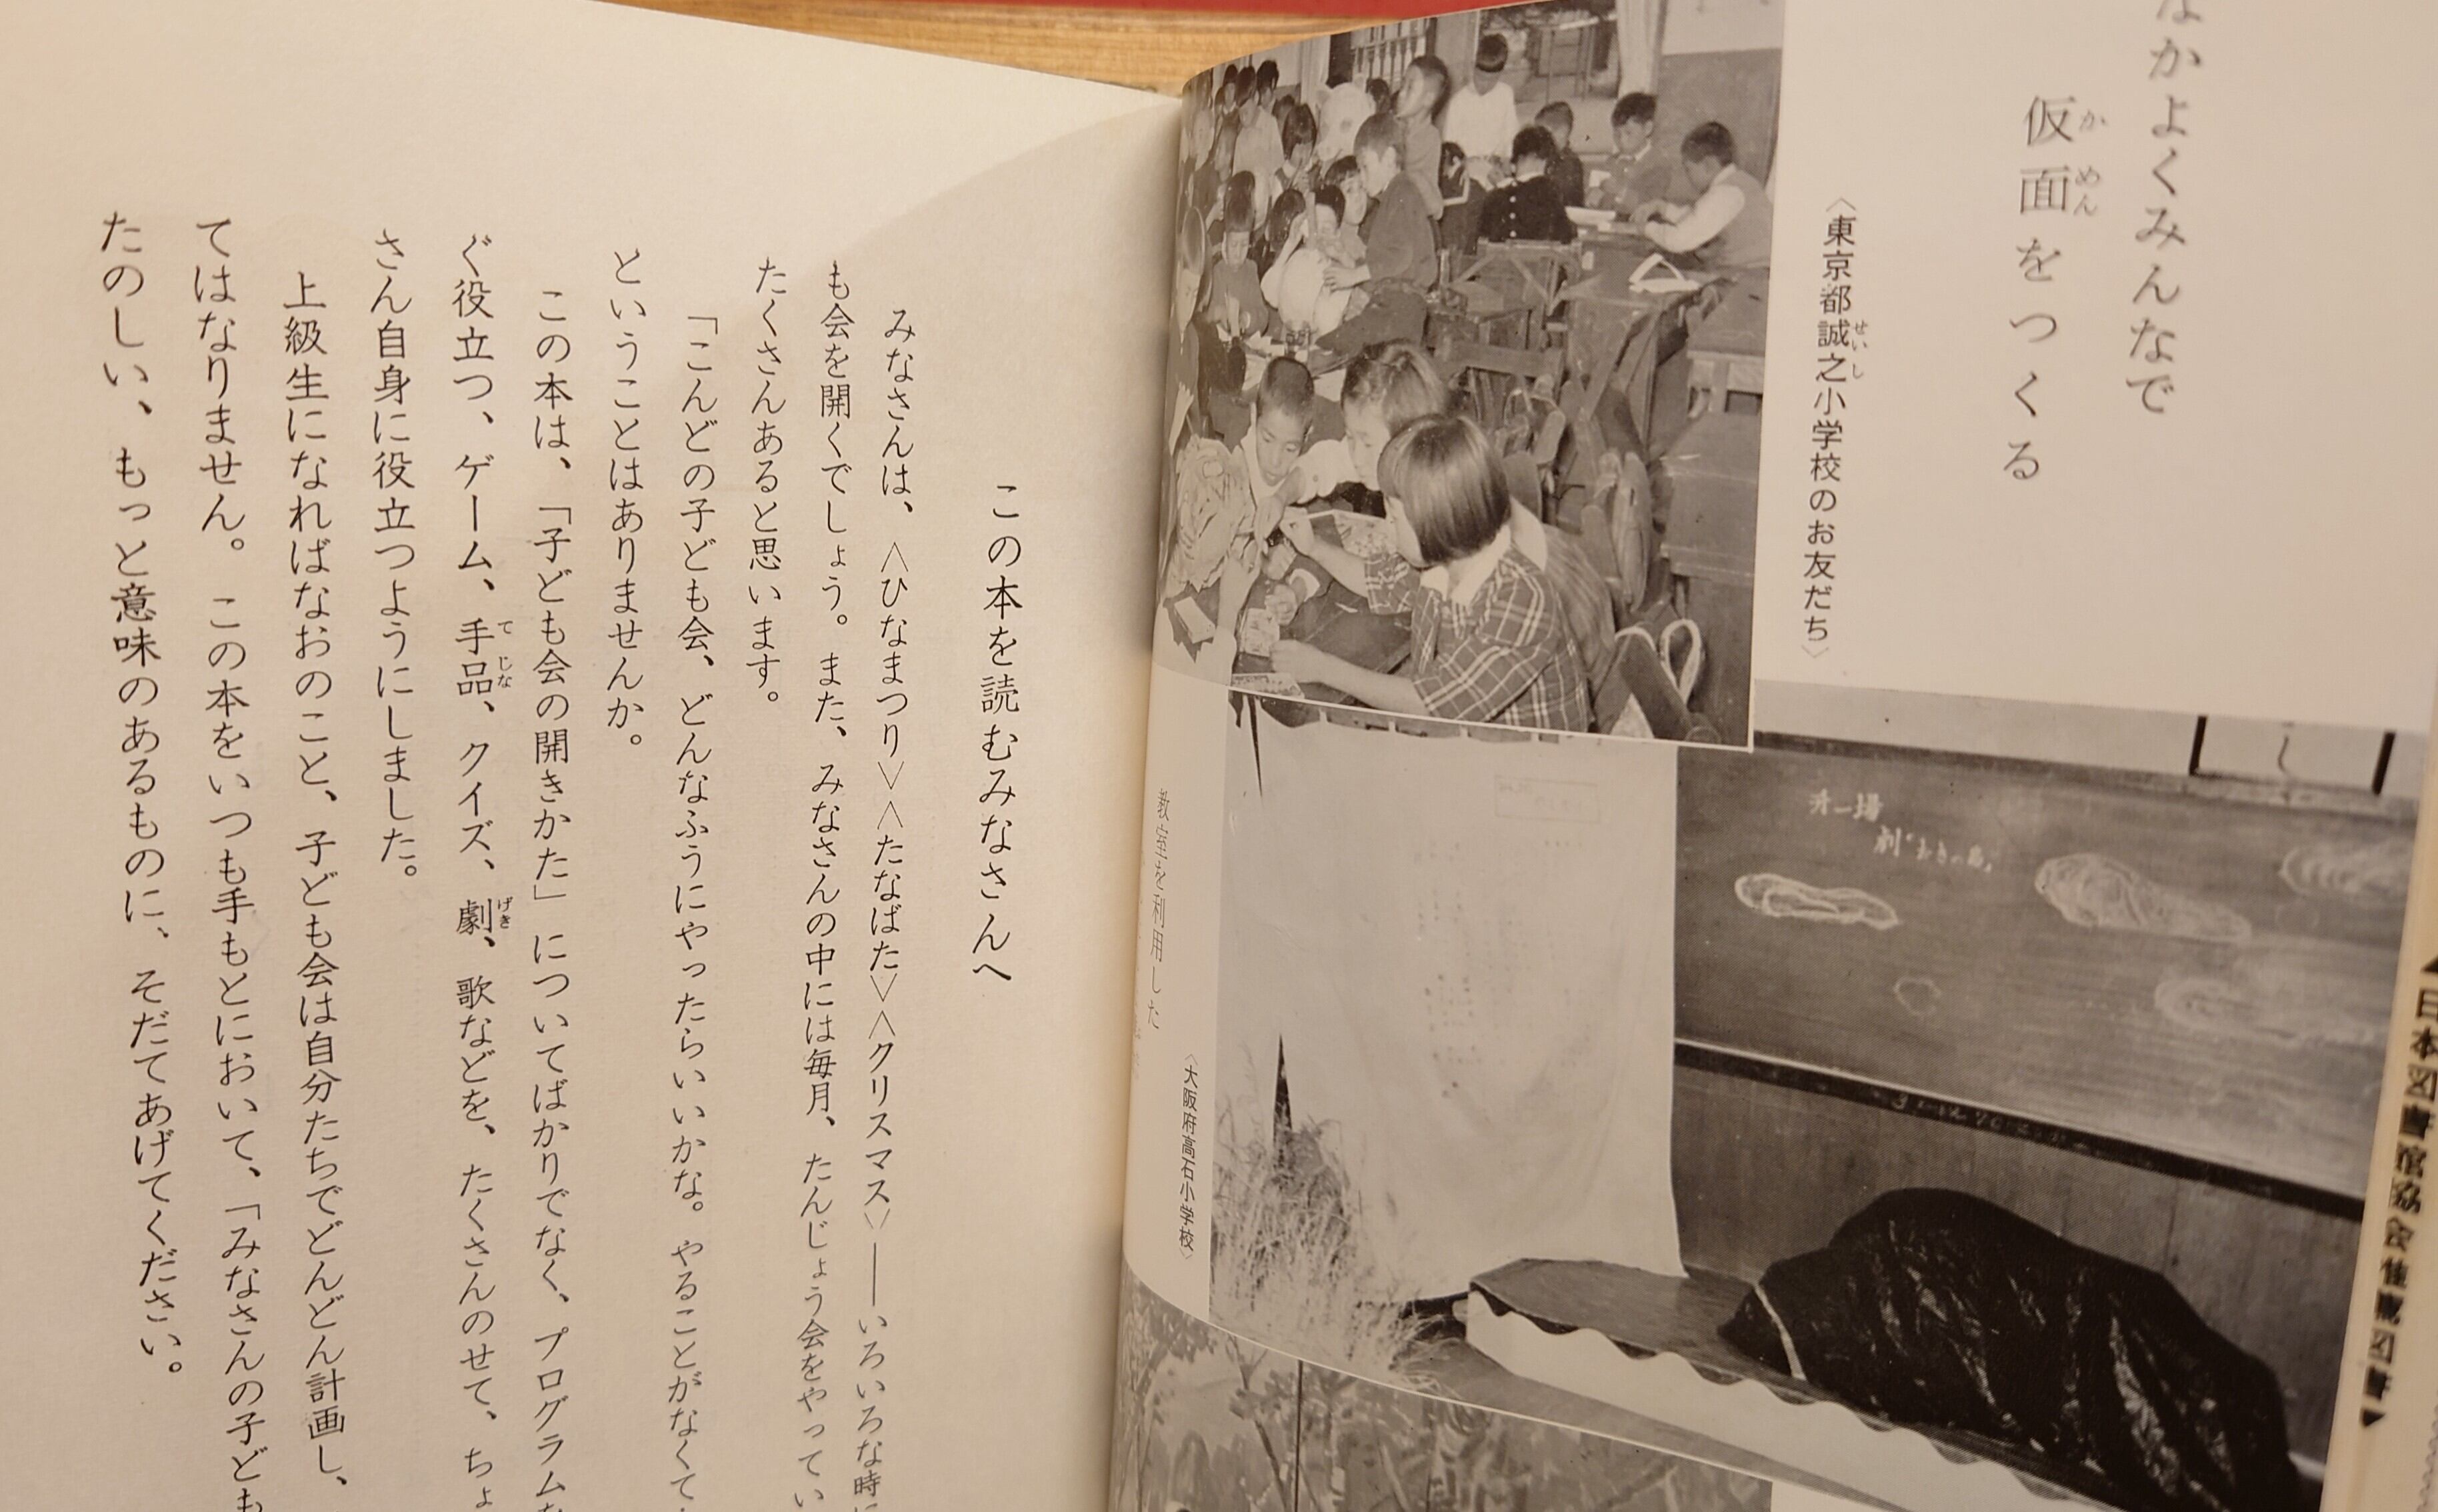 ▲日本図書館協会推薦図書▼
なかよくみんなで
仮面をつくる
かめん
〈東京都誠之小学校のお友だち〉
せいし
第一場
劇
教室を利用した
〈大阪府高石小学校〉
この本を読むみなさんへ
みなさんは、〈ひなまつり〉〈たなばた〉〈クリスマス〉――いろいろな時に
も会を開くでしょう。また、みなさんの中には毎月、たんじょう会をやってい
たくさんあると思います。
「こんどの子ども会、どんなふうにやったらいいかな。やることがなくて
ということはありませんか。
この本は、「子ども会の開きかた」についてばかりでなく、プログラム
ぐ役立つ、ゲーム、手品、クイズ、劇、歌などを、たくさんのせて、ちょ
てじな
げき
さん自身に役立つようにしました。
上級生になればなおのこと、子ども会は自分たちでどんどん計画し、
てはなりません。この本をいつも手もとにおいて、「みなさんの子ども
たのしい、もっと意味のあるものに、そだてあげてください。